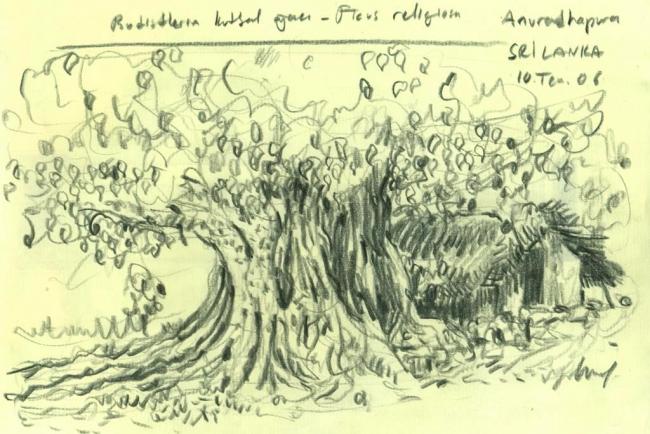 Budistlerin kutsal ağacı - Ficus religiosa
Anuradhapura
SRİ LANKA
10 Tem. 06